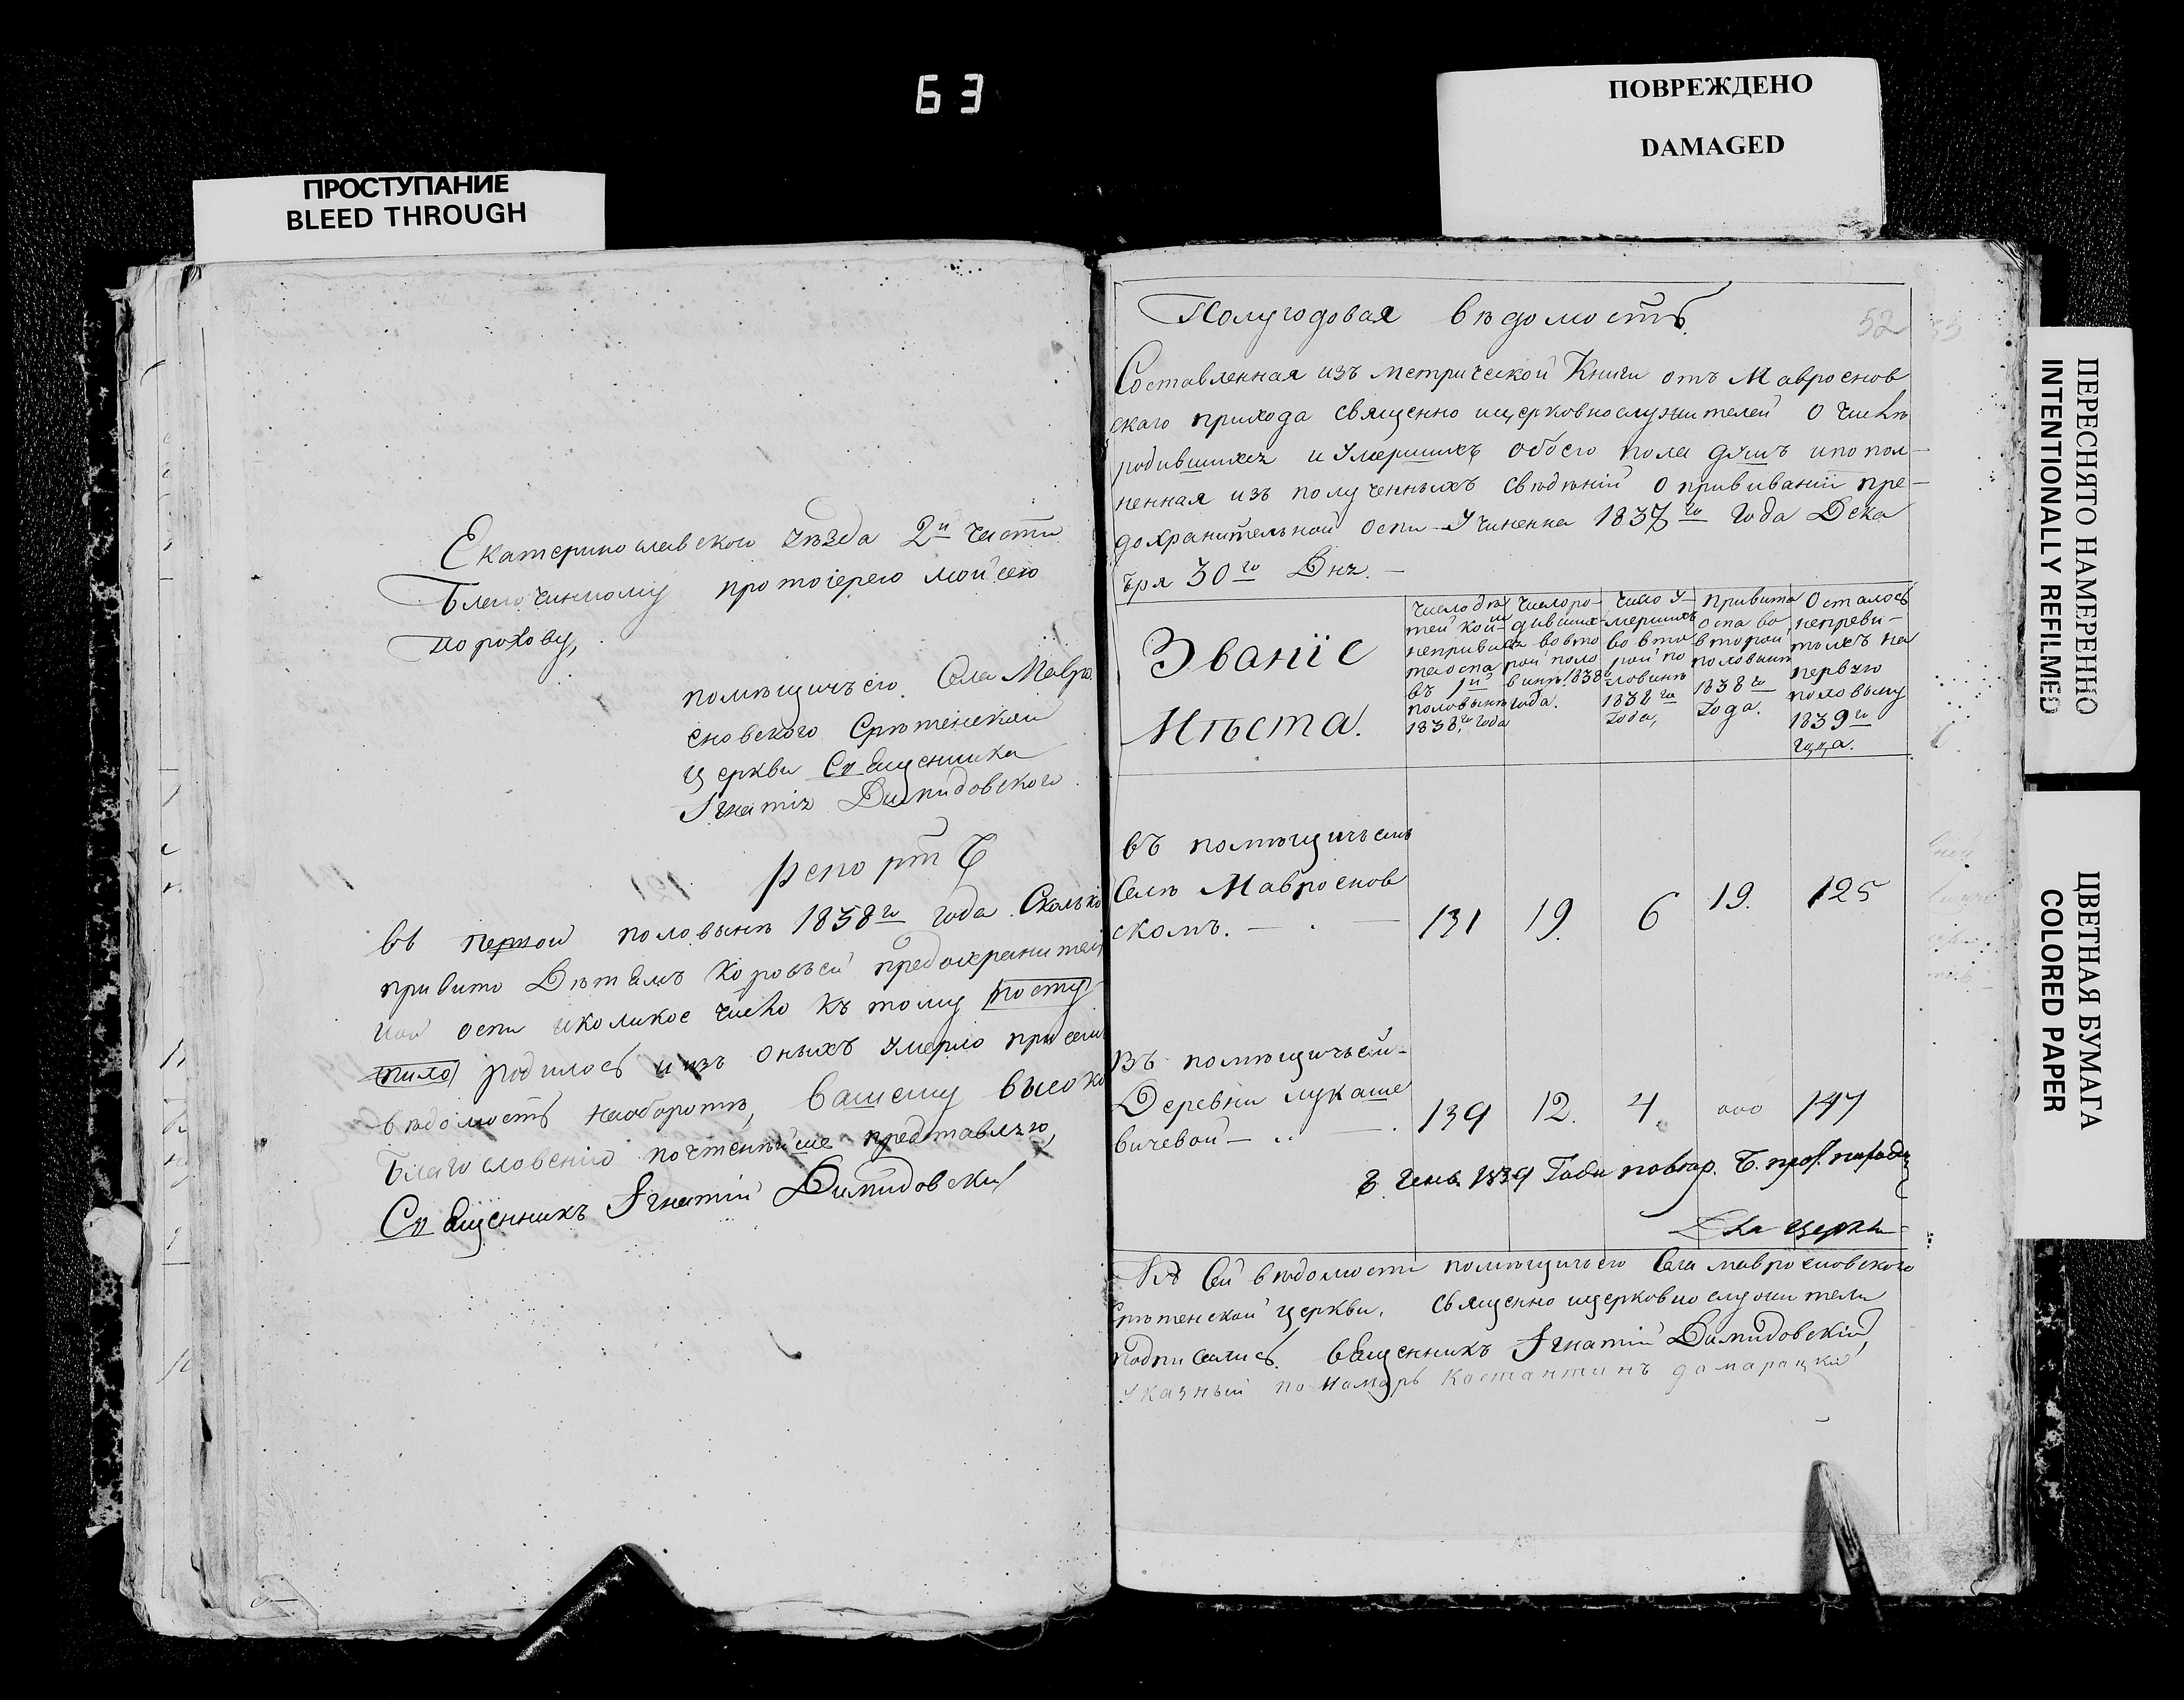 63
ПОВРЕЖДЕНО
DAMAGED
ПРОСТУПАНИЕ
BLEED THROUGH
Екатеринославского уѣзда 2й части
Благочинному протоіерею Мойсею
порохову,
помѣщичьего Села Мавро
еновского Срѣтенской
Церкви Священника
Игнатія Димидовского
Репортъ
въ первой половынѣ 1838го года. Сколько
привито Дѣтямъ Коровъей предохранитель
ной оспы иколикое число къ тому посту
пило родилось и изъ оныхъ умерло при семъ
вѣдомость наоборотѣ, вашему высоко
Благословенію почтенѣйше представляю,
Священникъ Игнатій Димидовскій
Полугодовая вѣдомость
52
53
Составленная изъ метрической Книги отъ Мавроенов
скаго прихода священно ицерковнослужителей о числѣ
родившихся и Умершихъ обоего пола душъ ипопол-
ненная изъ полученныхъ свѣдѣній о прививаніи пре-
дохранительной оспы Учиненна 1837го года Дека
бря 30го Дня. -
Званіе
Мѣста.
число дѣ
тей коймъ
непривы
та оспа
въ 1й
половынѣ
1838го года
число ро-
дивших-
ся во вто
рой поло
винѣ 1838
года.
число У-
мершихъ
во вто
рой по
ловинѣ
1838го
года,
Привита
оспа во
второй
половынѣ
1838го
года.
Осталось
непреви-
тыхъ на
первую
половыну
1839го
года.
въ помѣщичьемъ
Селѣ Мавроенов
скомъ. — 131 19. 6 19. 125
Въ помѣщичьей-
Деревни лукаше
вичевой — 139 12. 4. 000 147
1839 Года
Къ Сей вѣдомости помѣщичьего Села мавроеновского
Срѣтенской церкви, священно ицерковнослужители
подписались. Священникъ Игнатій Димидовскій,
Указный пономарь Костантинъ домарацкій
ПЕРЕСНЯТО НАМЕРЕННО
INTENTIONALLY REFILMED
ЦВЕТНАЯ БУМАГА
COLORED PAPER